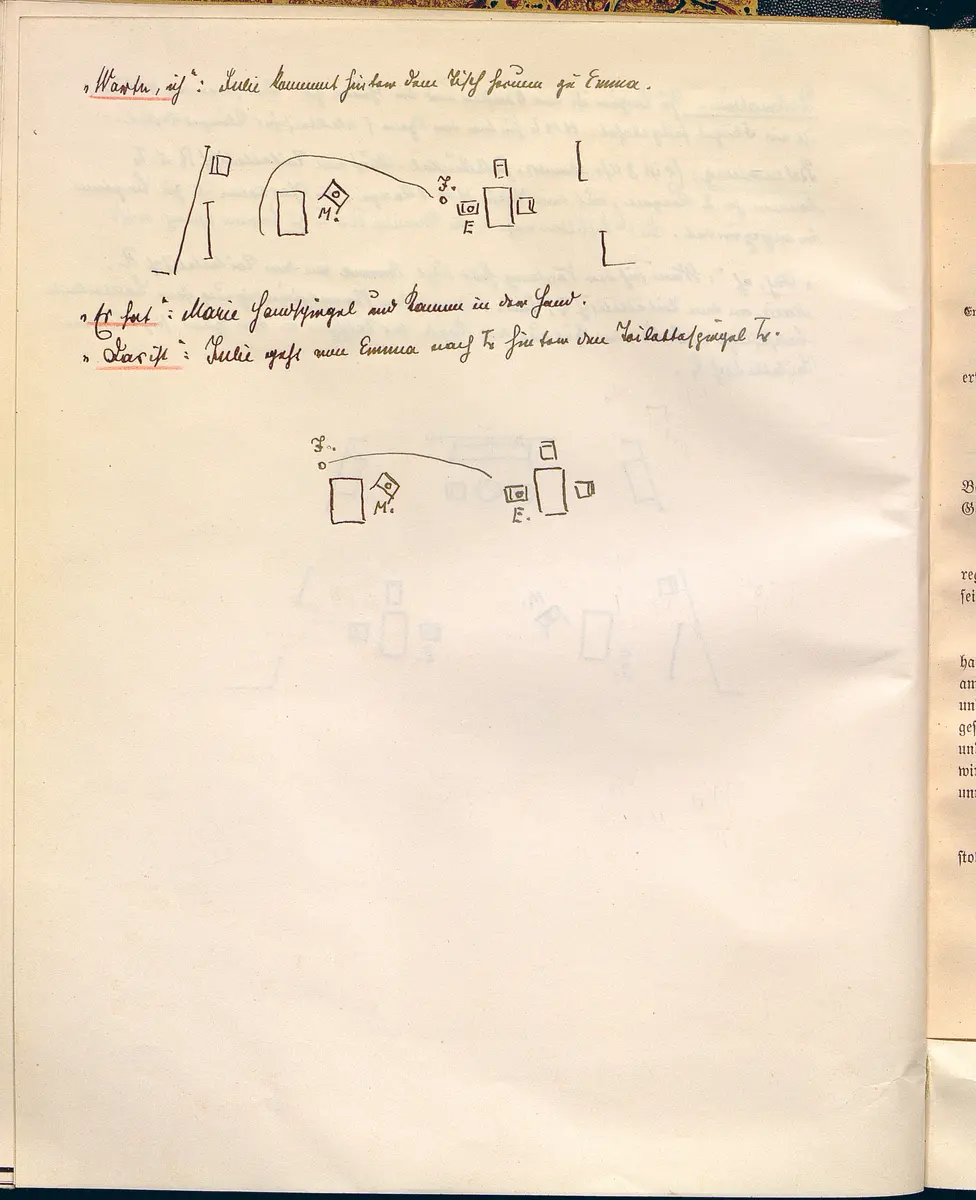 „Warte, ich“: Julie kommt hinter dem Tisch herum zu Emma.
J.
M.
E
„Er hat“: Marie Handspiegel und Kamm in der Hand.
„Das ist“: Julie geht von Emma nach Tr hinter den Toilettespiegel Tr.
J.
M.
E.
er
reg
sei
ha
am
un
ges
un
wi
un
sto